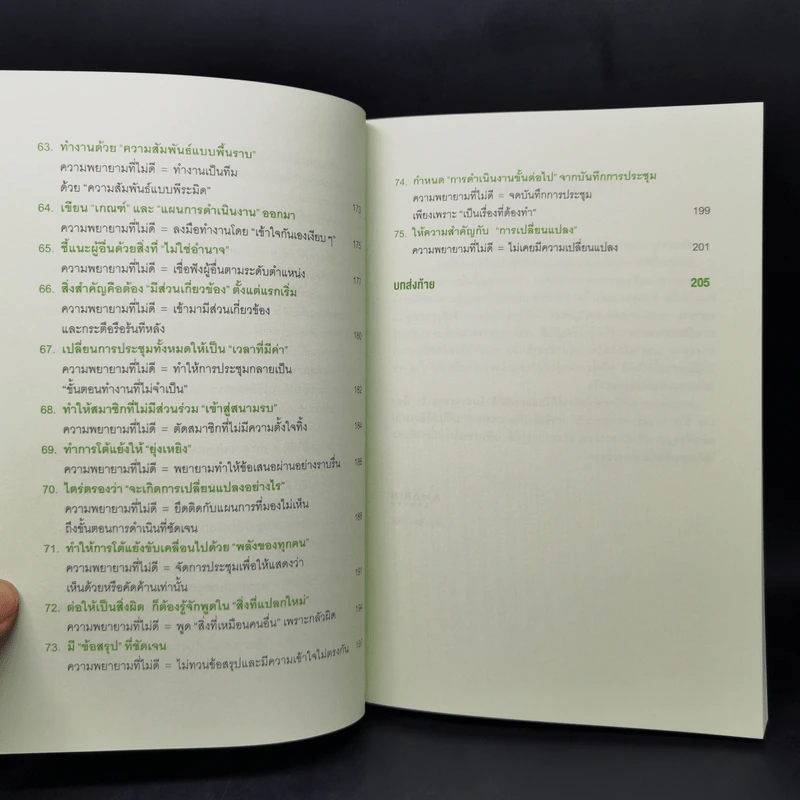 63. ทำงานด้วย "ความสัมพันธ์แบบพื้นราบ"
ความพยายามที่ไม่ดี = ทำงานเป็นทีม
ด้วย "ความสัมพันธ์แบบพีระมิด" 173
64. เขียน "เกณฑ์" และ "แผนการดำเนินงาน" ออกมา
ความพยายามที่ไม่ดี = ลงมือทำงานโดย "เข้าใจกันเองเงียบๆ" 175
65. ชี้แนะผู้อื่นด้วยสิ่งที่ "ไม่ใช่อำนาจ"
ความพยายามที่ไม่ดี = เชื่อฟังผู้อื่นตามระดับตำแหน่ง 177
66. สิ่งสำคัญคือต้อง "มีส่วนเกี่ยวข้อง" ตั้งแต่แรกเริ่ม
ความพยายามที่ไม่ดี = เข้ามามีส่วนเกี่ยวข้อง
และกระตือรือร้นทีหลัง 180
67. เปลี่ยนการประชุมทั้งหมดให้เป็น "เวลาที่มีค่า"
ความพยายามที่ไม่ดี = ทำให้การประชุมกลายเป็น
"ขั้นตอนทำงานที่ไม่จำเป็น" 182
68. ทำให้สมาชิกที่ไม่มีส่วนร่วม "เข้าสู่สนามรบ"
ความพยายามที่ไม่ดี = ตัดสมาชิกที่ไม่มีความตั้งใจทิ้ง 184
69. ทำการโต้แย้งให้ "ยุ่งเหยิง"
ความพยายามที่ไม่ดี = พยายามทำให้ข้อเสนอผ่านอย่างราบรื่น 186
70. ไตร่ตรองว่า "จะเกิดการเปลี่ยนแปลงอย่างไร"
ความพยายามที่ไม่ดี = ยึดติดกับแผนการที่มองไม่เห็น
ถึงขั้นตอนการดำเนินที่ชัดเจน 188
71. ทำให้การโต้แย้งขับเคลื่อนไปด้วย "พลังของทุกคน"
ความพยายามที่ไม่ดี = จัดการประชุมเพื่อให้แสดงว่า
เห็นด้วยหรือคัดค้านเท่านั้น 191
72. ต่อให้เป็นสิ่งผิด ก็ต้องรู้จักพูดใน "สิ่งที่แปลกใหม่"
ความพยายามที่ไม่ดี = พูด "สิ่งที่เหมือนคนอื่น" เพราะกลัวผิด 194
73. มี "ข้อสรุป" ที่ชัดเจน
ความพยายามที่ไม่ดี = ไม่ทวนข้อสรุปและมีความเข้าใจไม่ตรงกัน
74. กำหนด "การดำเนินงานขั้นต่อไป" จากบันทึกการประชุม
ความพยายามที่ไม่ดี = จดบันทึกการประชุม
เพียงเพราะ "เป็นเรื่องที่ต้องทำ" 199
75. ให้ความสำคัญกับ "การเปลี่ยนแปลง"
ความพยายามที่ไม่ดี = ไม่เคยมีความเปลี่ยนแปลง 201
บทส่งท้าย 205